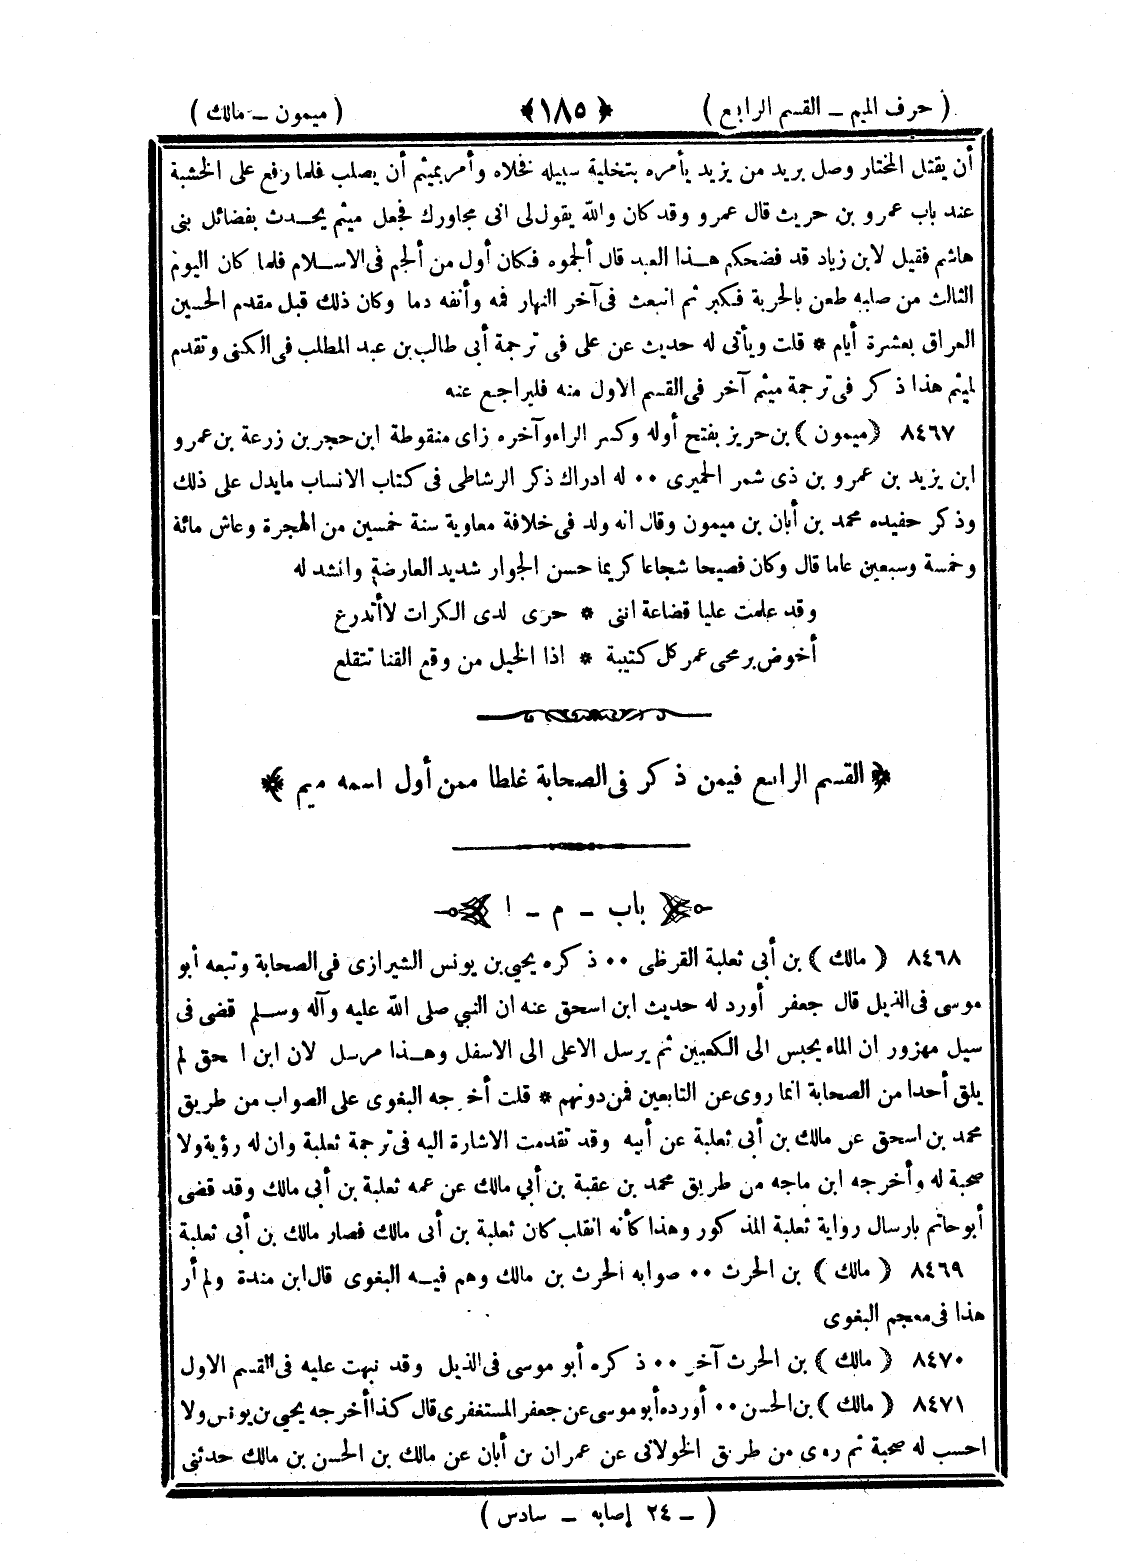 ( حرف الميم ـ القسم الرابع ) ﴿ ١٨٥ ﴾ ( ميمون ـ مالك )
أن يقتل المختار وصل بريد من يزيد يأمره بتخلية سبيله فخلاه وأمر بميثم أن يصلب فلما رفع على الخشبة
عند باب عمرو بن حريث قال عمرو وقد كان والله يقول لى انى مجاورك فجعل ميثم يحدث بفضائل بنى
هاشم فقيل لابن زياد قد فضحكم هذا العبد قال ألجموه فكان أول من ألجم فى الاسلام فلما كان اليوم
الثالث من صلبه طعن بالحربة فكبر ثم انبعث فى آخر النهار فمه وأنفه دما وكان ذلك قبل مقدم الحسين
العراق بعشرة أيام * قلت ويأتى له حديث عن على فى ترجمة أبي طالب بن عبد المطلب فى الكنى وتقدم
لميثم هذا ذكر فى ترجمة ميثم آخر فى القسم الاول منه فليراجع عنه
٨٤٦٧ ﴿ ميمون ﴾ بن حريز بفتح أوله وكسر الراء وآخره زاى منقوطة ابن حجر بن زرعة بن عمرو
ابن يزيد بن عمرو بن ذى شمر الحميرى ٠٠ له ادراك ذكر الرشاطى فى كتاب الانساب مايدل على ذلك
وذكر حفيده محمد بن أبان بن ميمون وقال انه ولد فى خلافة معاوية سنة خمسين من الهجرة وعاش مائة
وخمسة وسبعين عاما قال وكان فصيحا شجاعا كريما حسن الجوار شديد العارضة وانشد له
وقد علمت عليا قضاعة اننى * جرى لدى الكرات لا أتدرع
أخوض برمحى غمر كل كتيبة * اذا الخيل من وقع القنا تتقلع
﴿ القسم الرابع فيمن ذكر فى الصحابة غلطا ممن أول اسمه ميم ﴾
باب ـ م ـ ا
٨٤٦٨ ﴿ مالك ﴾ بن أبي ثعلبة القرظى ٠٠ ذكره يحيي بن يونس الشيرازى فى الصحابة وتبعه أبو
موسى فى الذيل قال جعفر أورد له حديث ابن اسحق عنه ان النبي صلى الله عليه وآله وسلم قضى فى
سيل مهزور ان الماء يحبس الى الكعبين ثم يرسل الاعلى الى الاسفل وهذا مرسل لان ابن اسحق لم
يلق أحدا من الصحابة انما روى عن التابعين فمن دونهم * قلت أخرجه البغوى على الصواب من طريق
محمد بن اسحق عن مالك بن أبى ثعلبة عن أبيه وقد تقدمت الاشارة اليه فى ترجمة ثعلبة وان له رؤية ولا
صحبة له وأخرجه ابن ماجه من طريق محمد بن عقبة بن أبي مالك عن عمه ثعلبة بن أبي مالك وقد قضى
أبو حاتم بارسال رواية ثعلبة المذكور وهذا كأنه انقلب كان ثعلبة بن أبى مالك فصار مالك بن أبى ثعلبة
٨٤٦٩ ﴿ مالك ﴾ بن الحرث ٠٠ صوابه الحرث بن مالك وهم فيه البغوى قال ابن مندة ولم أر
هذا فى معجم البغوى
٨٤٧٠ ﴿ مالك ﴾ بن الحرث آخر ٠٠ ذكره أبو موسى فى الذيل وقد نبهت عليه فى القسم الاول
٨٤٧١ ﴿ مالك ﴾ بن الحسن ٠٠ أورده أبو موسى عن جعفر المستغفرى قال كذا أخرجه يحيي بن يونس ولا
احسب له صحبة ثم روى من طريق الخولانى عن عمران بن أبان عن مالك بن الحسن بن مالك حدثنى
( ـ ٢٤ إصابه ـ سادس )